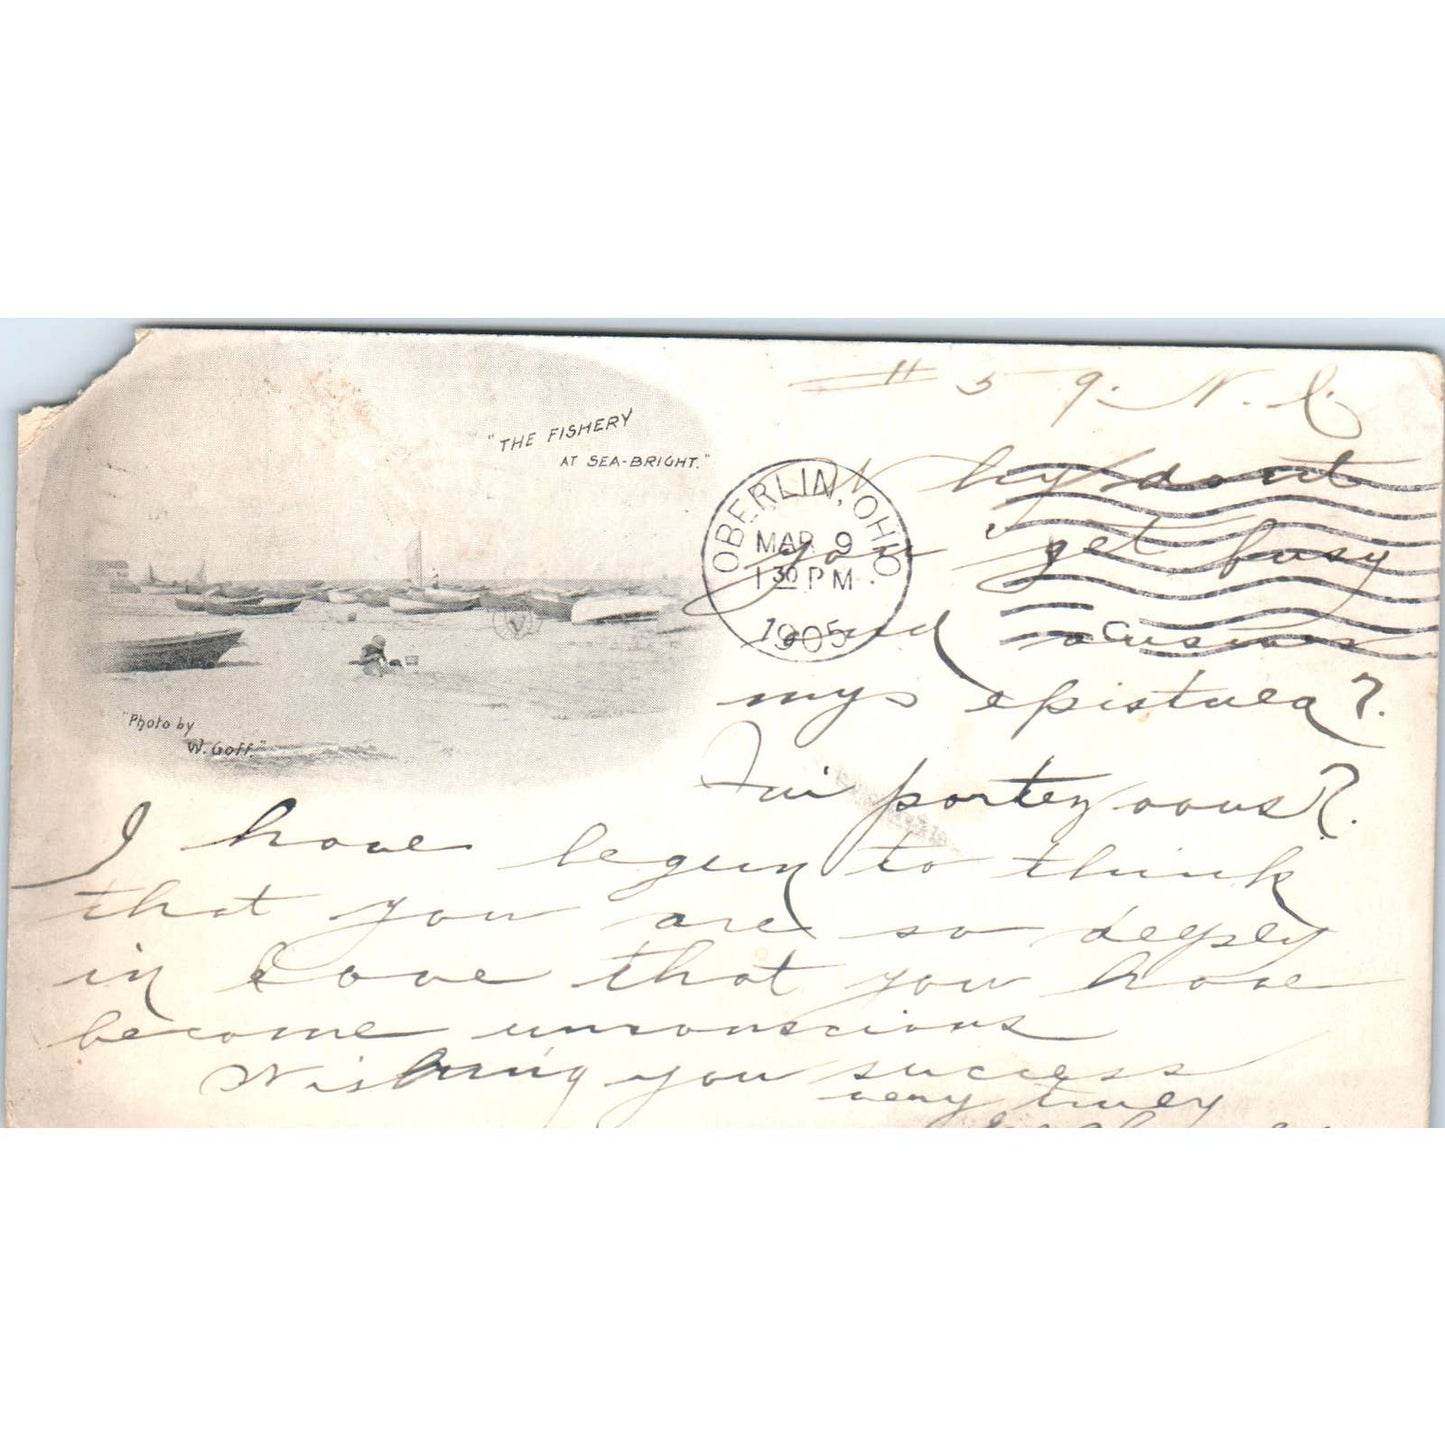 # 59. N.
"THE FISHERY
AT SEA-BRIGHT."
OBERLIN, OHIO
MAR 9
130 PM
1905
Why dont
you get busy
and
my epistula?
portez vous?
"Photo by
W. Goff."
I have begun to think
that you are so deeply
in love that you have
become unconscious
Wishing you success
very truly